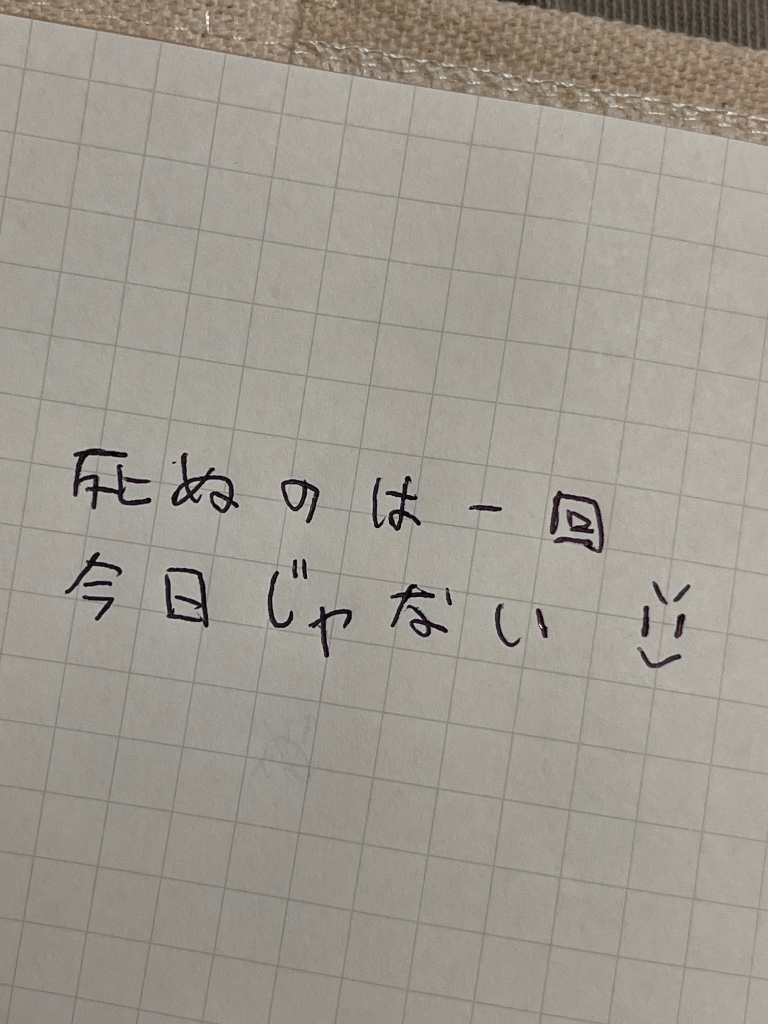 死ぬのは一回
今日じゃない